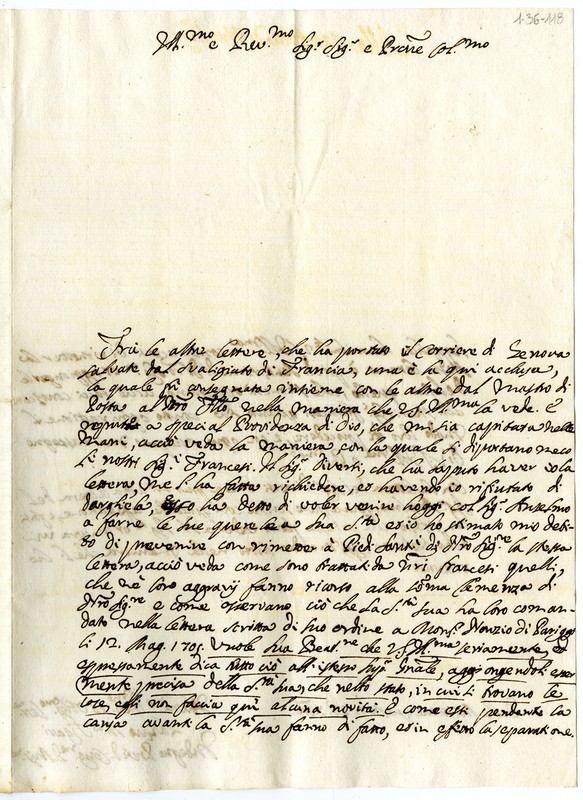 1-36-118
Ill.mo e Rev.mo Sig.r Sig.r e Prone Col.mo
Frà le altre lettere, che ha portato il Corriere di Genova
salvate dal svaligiato di Francia, una è la qui acclusa,
la quale fù consegnata insieme con le altre dal Mastro di
Posta al nella maniera che V.S. Ill.ma la vede. È
a special Providenza di Dio, che mi sia capitata nelle
mani, acciò veda la maniera con la quale si diportano meco
li nostri SS.i Francesi. Il Sig.r Diverti, che hà saputo haver io la
lettera me l'ha fatta richiedere, et havendo io rifiutato di
dargliela, esso ha detto di voler venire hoggi col Sig.r Anselmo
a farne le sue querele a Sua S.tà et io hò stimato mio debi-
to di prevenire con rimetter à Piedi Santi di Nro Sig.re la stessa
lettera, acciò veda come sono trattati da francesi quelli,
che nè loro aggravij fanno ricorso alla somma Clemenza di
Nro Sig.re e come osservano ciò che la S.tà Sua ha loro coman-
dato nella lettera scritta di suo ordine a Mons.r Nunzio di Parigi
li 12. Mag. 1705. Vuole Sua Beat.ne che V.S. Ill.ma seriamente, ed
espressamente dica tutto ciò all'istesso Sig.r aggiongendoli esser
mente precisa della S.tà Sua, che nello stato, in cui si trovano le
cose, egli non faccia qui alcuna novità. E come essi pendente la
causa avanti la S.tà Sua fanno di fatto, et in effetto la separatione.